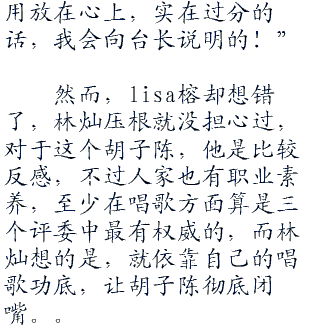 用放在心上，实在过分的
话，我会向台长说明的！”
然而，lisa榕却想错
了，林灿压根就没担心过，
对于这个胡子陈，他是比较
反感，不过人家也有职业素
养，至少在唱歌方面算是三
个评委中最有权威的，而林
灿想的是，就依靠自己的唱
歌功底，让胡子陈彻底闭
嘴。。